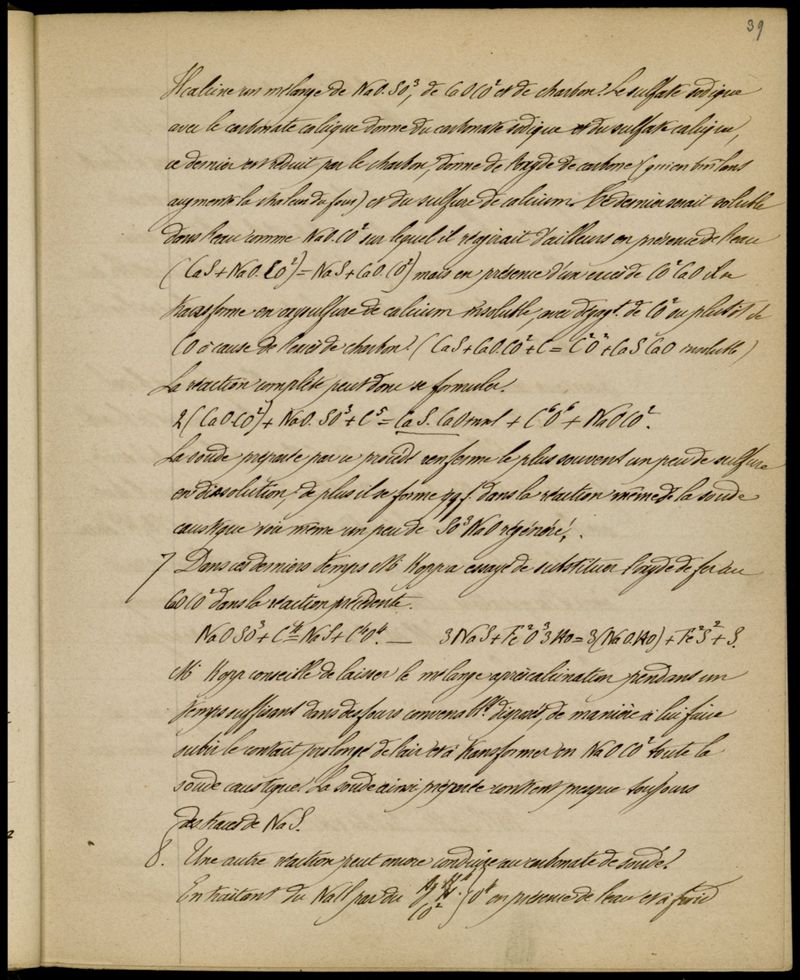 39
Il calcine un mélange de NaO.SO³, de CaOCO² et de charbon. Le sulfate sodique
avec le carbonate calcique donne du carbonate sodique et du sulfate calcique,
ce dernier est réduit par le charbon, donne de l'oxyde de carbone (qui en brûlant
augmente la chaleur du four) et du sulfure de calcium. Ce dernier serait soluble
dans l'eau comme NaO.CO² sur lequel il réagirait d'ailleurs en présence de l'eau
(CaS + NaO.CO²) = NaS + CaO.CO²) mais en présence d'un excès de CO²CaO il se
transforme en oxysulfure de calcium insoluble, avec dégagt. de CO² ou plutôt de
CO à cause de l'excès de charbon. (CaS + CaO.CO² + C = C²O² + CaS CaO insoluble)
La réaction complète peut donc se formuler.
2(CaO.CO²) + NaO.SO³ + C⁵ = CaS.CaO insol + C⁶O⁶ + NaOCO².
La soude préparée par ce procédé renferme le plus souvent un peu de sulfure
en dissolution, de plus il se forme qqf. dans la réaction même de la soude
caustique voir même un peu de SO³NaO régénéré.
7 Dans ces derniers temps Mr Kopp a essayé de substituer l'oxyde de fer au
CaOCO² dans la réaction précédente.
NaOSO³ + C⁴ = NaS + C⁴O⁴. — 3NaS + Fe²O³3HO = 3(NaO.HO) + Fe²S² + S.
Mr Kopp conseille de laisser le mélange après calcination pendant un
temps suffisant dans des fours convenablt. disposés, de manière à lui faire
subir le contact prolongé de l'air et à transformer en NaOCO² toute la
soude caustique. La soude ainsi préparée contient presque toujours
des traces de NaS.
8. Une autre réaction peut encore conduire au carbonate de soude.
En traitant du NaCl par du CO² } O⁴ en présence de l'eau et à froid